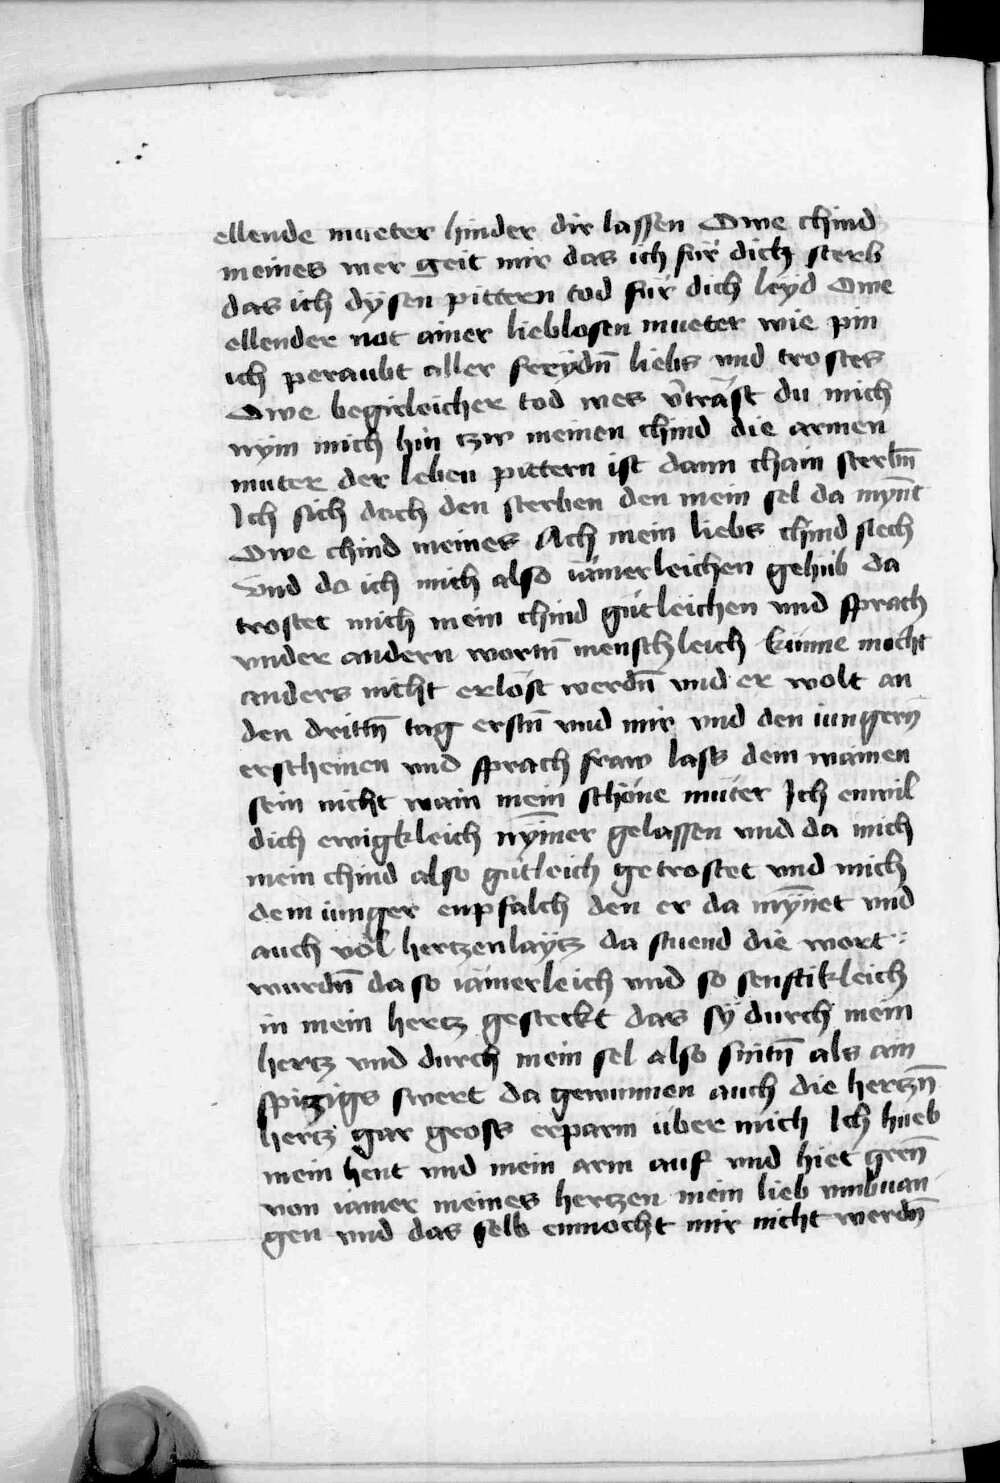 ellende mueter hinder dir lassen Owe chind
meines wer geit mir das ich für dich sterb
das ich dÿsen pittern tod für dich leyd Owe
ellender not ainer lieblosen mueter wie pin
ich peraubt aller freÿdn̄ liebs vnd trostes
Owe begirleicher tod wes v̄träst du mich
nÿm mich hin tzw meinen chind die armen
muter der leben pittern ist dann chain sterbn̄
Ich sich doch den sterben den mein sel da mÿn̄t
Owe chind meines Ach mein liebs chind stech
Vnd do ich mich also iämerleichen gehub da
trostet mich mein chind gütleichen vnd sprach
vnder andern wortn̄ menschleich künne mocht
anders nicht erlöst werdn̄ vnd er wolt an
den drittn̄ tag erstn̄ vnd mir vnd den iungern̄
erscheinen vnd sprach fraw lass dein wainen
sein nicht wain mein schöne müter Ich enwil
dich ewigkleich nÿm̄er gelassen vnd da mich
mein chind also gütleich getrostet vnd mich
dem iunger enpfalch den er da mÿn̄et vnd
auch vol hertzenlaytz da stuend die wort
wurdn̄ da so iämerleich vnd so senftikleich
in mein hertz gesteckt das sÿ durch mein
hertz vnd durch mein sel also snitn̄ als ain
spitzigs swert da gewunnen auch die hertzn̄
hertz gar gross erparm über mich Ich hueb
mein hent vnd mein arm auf vnd hiet gern̄
von iamer meines hertzen mein lieb vmbuan
gen vnd das selb enmocht mir nicht werdn̄